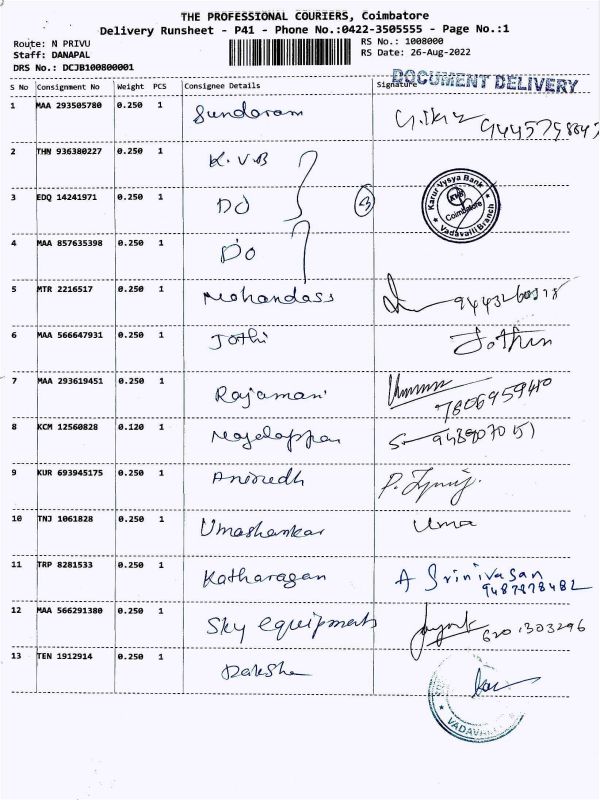 THE PROFESSIONAL COURIERS, Coimbatore
Delivery Runsheet - P41 - Phone No.:0422-3505555 - Page No.:1
Route: N PRIVU RS No.: 1008000
Staff: DANAPAL RS Date: 26-Aug-2022
DRS No.: DCJB100800001
DOCUMENT DELIVERY
S No Consignment No Weight PCS Consignee Details Signature
1 MAA 293505780 0.250 1 Sundaram
2 THN 936380227 0.250 1 K.V.B
3 EDQ 14241971 0.250 1 DO 3
Karur Vysya Bank
KVB
Coimbatore
Vadavalli Branch
4 MAA 857635398 0.250 1 DO
5 MTR 2216517 0.250 1 Mohandass
6 MAA 566647931 0.250 1 Jothi
7 MAA 293619451 0.250 1 Rajamani 7806959410
8 KCM 12560828 0.120 1
9 KUR 693945175 0.250 1 Anirudh
10 TNJ 1061828 0.250 1 Umashankar Uma
11 TRP 8281533 0.250 1 Katharagan A Srinivasan
9487978482
12 MAA 566291380 0.250 1 Sky equipments 6201303296
13 TEN 1912914 0.250 1 Daksha
VADAVALLI